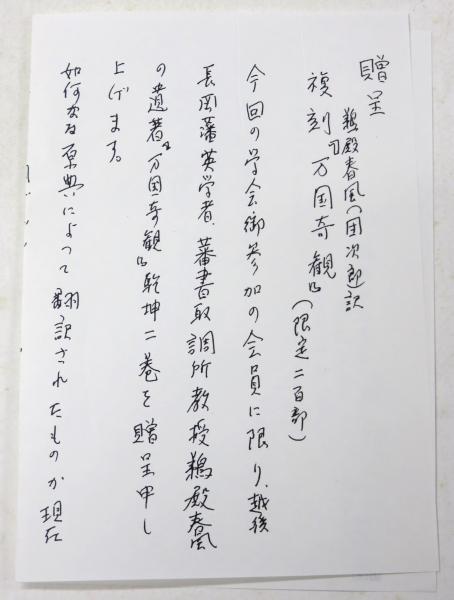 贈呈
鵜殿春風(団次郎)訳
複刻『万国奇観』(限定二百部)
今回の学会御参加の会員に限り、越後
長岡藩英学者、蕃書取調所教授鵜殿春風
の遺著『万国奇観』乾坤二巻を贈呈申し
上げます。
如何なる原典によって翻訳されたものか現在